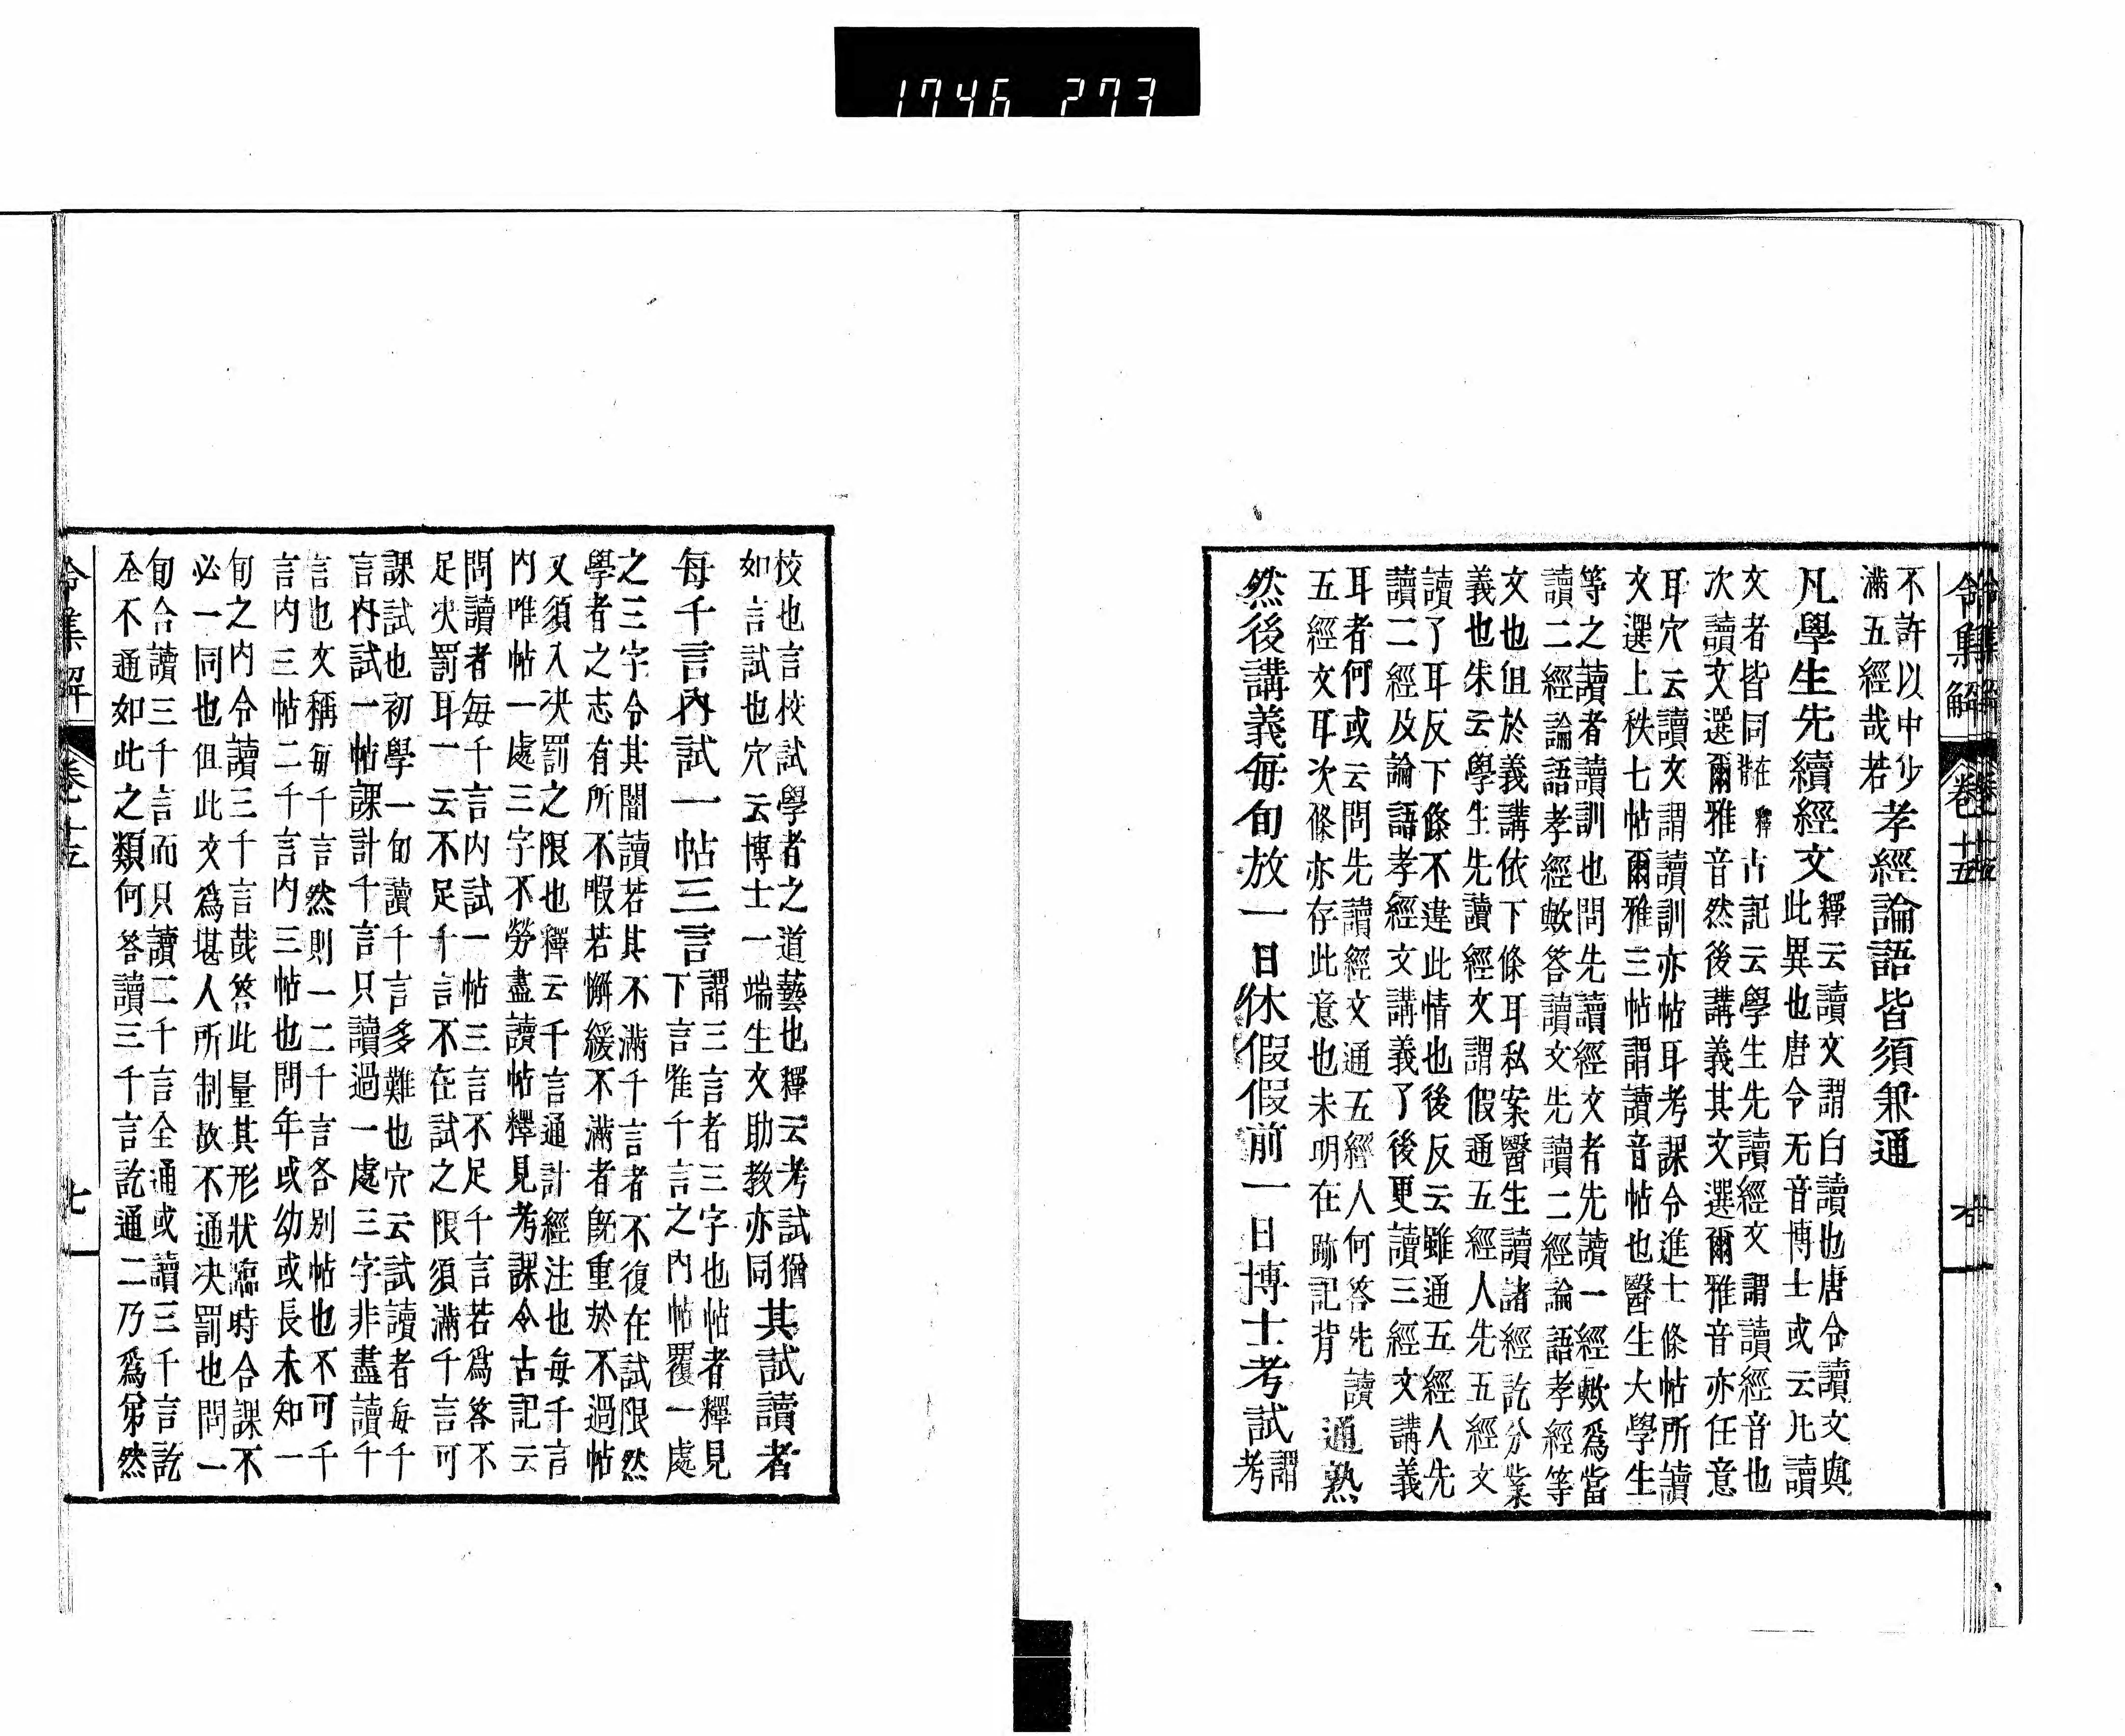 1746 273
令集解 卷十五
不許以中少
滿五經哉若
孝經論語皆須兼通
凡學生先續經文
釋云讀文謂白讀也唐令讀文與
此異也唐令无音博士或云凡讀
文者皆同在釋背古記云學生先讀經文謂讀經音也
次讀文選爾雅音然後講義其文選爾雅音亦任意
耳穴云讀文謂讀訓亦帖耳考課令進士條帖所讀
文選上秩七帖爾雅三帖謂讀音帖也醫生大學生
等之讀者讀訓也問先讀經文者先讀一經歟爲當
讀二經論語孝經歟答讀文先讀二經論語孝經等
文也但於義講依下條耳私案醫生讀諸經訖分業
義也朱云學生先讀經文謂假通五經人先五經文
讀了耳反下條不違此情也後反云雖通五經人先
讀二經及論語孝經文講義了後更讀三經文講義
耳者何或云問先讀經文通五經人何答先讀
五經文耳次條亦存此意也未明在跡記背
通熟
然後講義每旬放一日休假假前一日博士考試
謂
考
校也言校試學者之道藝也釋云考試猶
如言試也穴云博士一端生文助教亦同
其試讀者
每千言內試一帖三言
謂三言者三字也帖者釋見
下言唯千言之內帖覆一處
之三字令其闇讀若其不滿千言者不復在試限然
學者之志有所不暇若懈緩不滿者旣重於不過帖
又須入決罰之限也釋云千言通計經注也每千言
內唯帖一處三字不勞盡讀帖釋見考課令古記云
問讀者每千言內試一帖三言不足千言若爲答不
足決罰耳一云不足千言不在試之限須滿千言可
課試也初學一旬讀千言多難也穴云試讀者每千
言內試一帖課計千言只讀過一處三字非盡讀千
言也文稱每千言然則一二千言各別帖也不可千
言內三帖二千言內三帖也問年或幼或長未知一
旬之內令讀三千言哉答此量其形狀臨時合課不
必一同也但此文爲堪人所制故不通決罰也問一
旬合讀三千言而只讀二千言全通或讀三千言訖
全不通如此之類何答讀三千言訖通二乃爲第然
令集解 卷十五 七